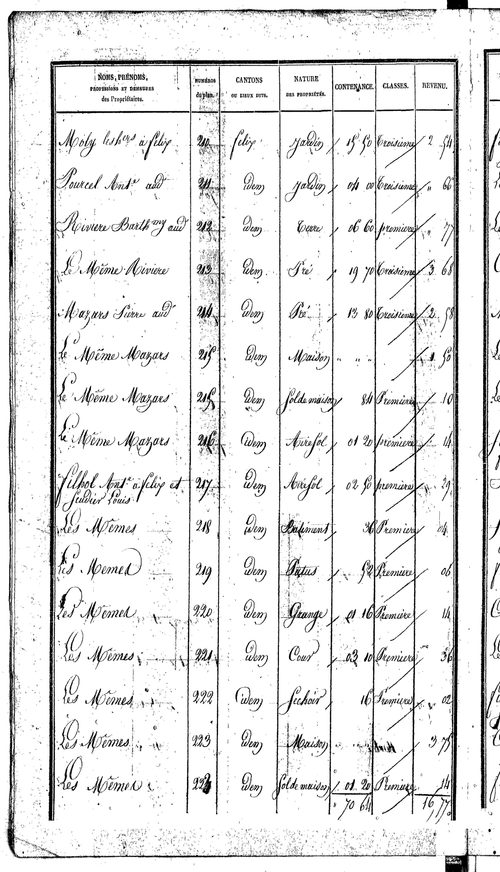 NOMS, PRÉNOMS, PROFESSIONS ET DEMEURES des Propriétaires. NUMÉROS du plan. CANTONS OU LIEUX DITS. NATURE DES PROPRIÉTÉS. CONTENANCE. CLASSES. REVENU.
Moly les hers à felix 210 felix jardin 15 50 Troisieme 2 54
Pourcel Ante aud 211 idem jardin 04 00 Troisieme " 66
Riviere Barthmy aud 212 idem Terre 06 60 premiere " 77
Le Même Riviere 213 idem Pré 19 70 Troisieme 3 68
Mazars Pierre aud 214 idem Pré 13 80 Troisieme 2 58
Le Même Mazars 215 idem Maison " " " 1 50
Le Même Mazars 215 idem Sol de maison 84 Premiere 10
Le Même Mazars 216 idem Airesol 01 20 premiere 14
filhol Ante à felix et 217 idem Airesol 02 50 premiere 29
Louis
Les Mêmes 218 idem Batiment 36 Premiere 04
Les Mêmes 219 idem Patus 52 Premiere 06
Les Mêmes 220 idem Grange 01 16 Premiere 14
Les Mêmes 221 idem Cour 03 10 Premiere 36
Les Mêmes 222 idem Sechoir 16 Premiere 02
Les Mêmes 223 idem Maison 3 75
Les Mêmes 224 idem Sol de maison 01 20 Premiere 14
70 64 16,77